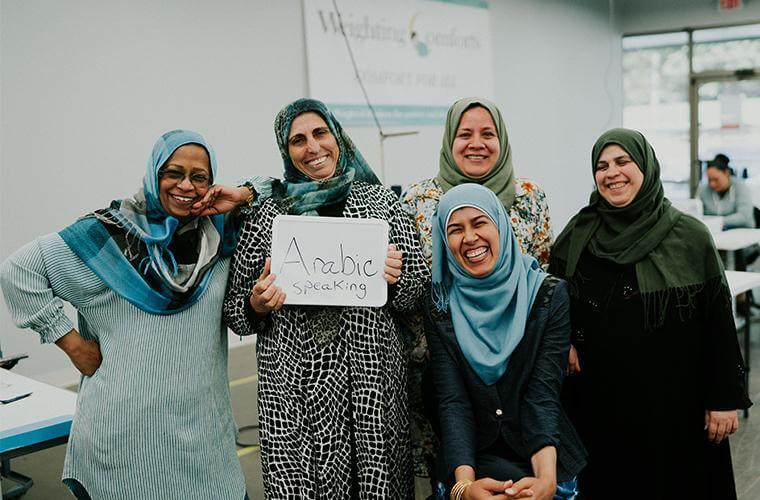 Weighting Comforts
COMFORT FOR ALL
Arabic
speaking